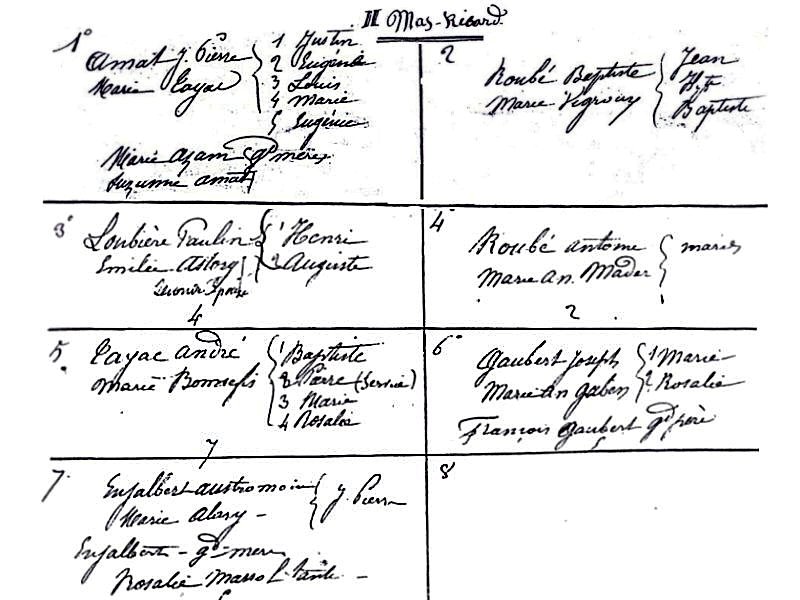 II Mas-Ricard.
1°
Amat J. Pierre
Marie Cayac
1 Justin
2 Eugénie
3 Louis
4 Marie
5 Eugénie
Marie Azam gd mères
Suzanne Amat
2
Roubé Baptiste
Marie Vigroux
Jean
Hyte
Baptiste
3°
Loubière Paulin
Emilie Astorg
1 Henri
2 Auguste
4
4°
Roubé Antoine
Marie An. Mader
mariés
2
5.
Cayac André
Marie Bonnefis
1 Baptiste
2 Pierre (Service)
3 Marie
4 Rosalie
7
6°
Gaubert Joseph
Marie An Gaben
1 Marie
2 Rosalie
François Gaubert gd père
5
7.
Enjalbert Austremoine
Marie Alary -
J. Pierre
Enjalbert - gd-mère
Rosalie Marrol tante -
8